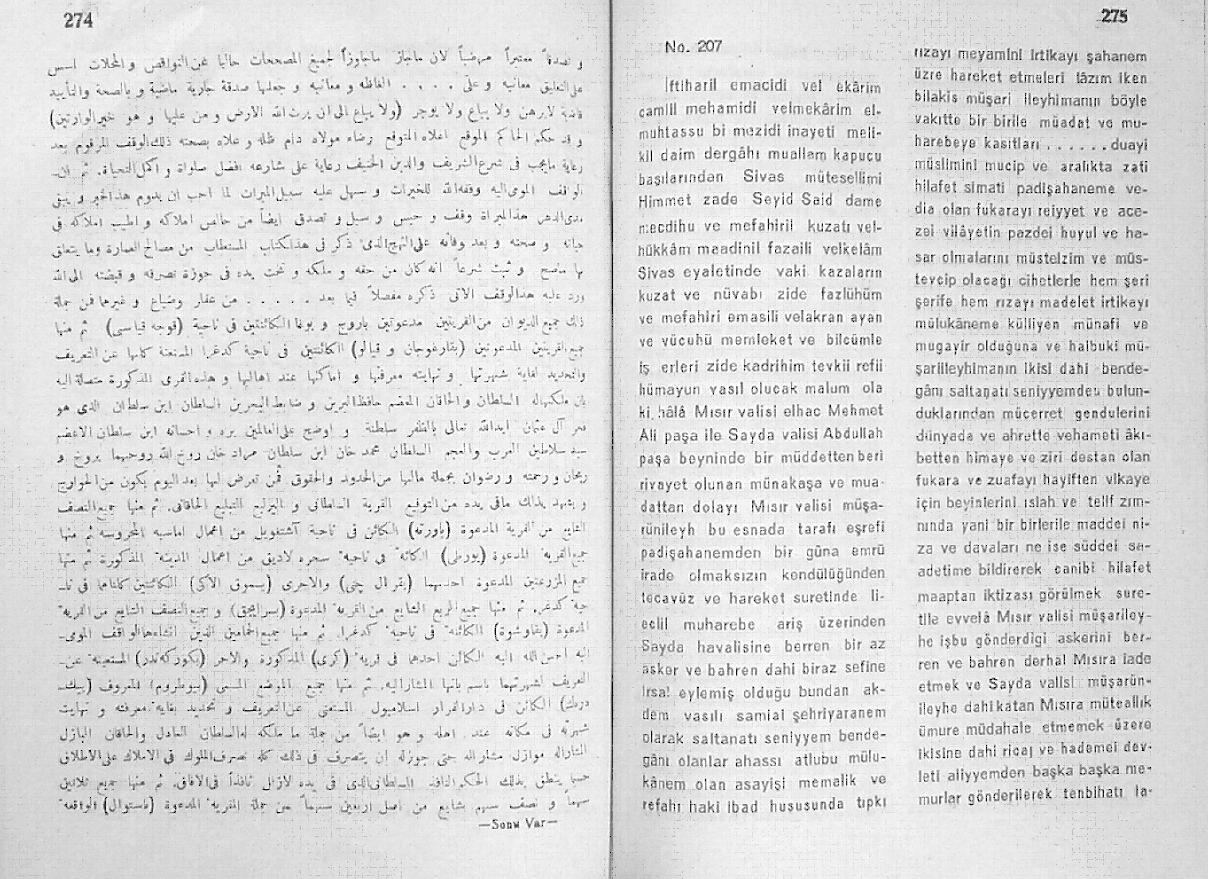 274
و تصدقاً معتبراً مرضياً لان ماجاز ماجاوزاً لجميع المصححات خاليا عن النواقص والمحلات اسس
على التعليق معانيه و على . . . . الفاظه و معانيه و جعلها صدقة جارية ماضية و بالصحة والتأييد
لايرهن ولا يباع ولا يوجر (ولا يباع الى ان يرث الله الارض و من عليها و هو خير الوارثين)
و قد حكم الحاكم الموقع اعلاه المتوقع رضاء مولاه دام ظله و علاه بصحته ذلك الوقف المرقوم بعد
رعاية مايجب فى شرع الشريف والدين الحنيف رعاية على شارعه افضل صلواة و اكمل التحياة. ثم ان
الواقف المومى اليه وفقه الله للخيرات و سهل عليه سبيل المبرات لما احب ان يدوم هذا الخير و يبقى
مدى الدهر هذا المبراة وقف و حبس و سبل و تصدق ايضاً من خالص املاكه و اطيب املاكه فى
حياته و صحته و بعد وفاته على النهج الذى ذكر فى هذا الكتاب المستطاب من مصالح العمارة وما يتعلق
بها ماصح و ثبت شرعاً انه كان من حقه و ملكه و تحت يده فى حوزة تصرفه و قبضته الى الله
ورد عليه هذا الوقف الاتى ذكره مفصلاً فيما بعد . . . . . من عقار وضياع و غيرها فمن جملة
ذلك جميع الديوان من القريتين مدعوتين باروج و يوغا الكائنتين فى ناحية (قوجه قياسى) ثم منها
جميع القريتين المدعوتين (بقارغوجان و قيالو) الكائنتين فى ناحية كدغرا المستغنية كلها عن التعريف
والتحديد لغاية شهرتها و نهايته معرفتها و اماكنها عند اهاليها و هذه القرى المذكورة متصلة اليه
بان ملكتها له السلطان والخاقان المعظم حافظ البرين و ضابط البحرين السلطان ابن سلطان الذى هو
فخر آل عثمان ايده الله تعالى بالظفر سلطنة و اوضح على العالمين بره و احسانه ابن سلطان الاعظم
سيد سلاطين العرب والعجم السلطان محمد خان ابن سلطان مراد خان روح الله روحهما بروح و
ريحان و رحمته و رضوان بجملة مالها من الحدود والحقوق فمن تعرض لها بعد اليوم يكون من الخوارج
و يشهد بذلك مافى يده من التوقيع القرية السلطانى و اليرليغ التبليغ الخاقانى. ثم منها جميع النصف
الشايع من القرية المدعوة (ياورته) الكائن فى ناحية آشتغويل من اعمال اماسيه المحروسه ثم منها
جميع القرية المدعوة (يورطى) الكائنه فى ناحية سحره لاديق من اعمال المدينه المذكورة ثم منها
جميع المزرعتين المدعوة احديهما (بقرال چى) والاخرى (بسموق الاكى) الكائنتين كلتاهما فى نا-
حية كدغر ثم منها جميع الربع الشايع من القرية المدعوة و جميع النصف الشايع من القرية
المدعوة (بقاوشوة) الكائنه فى ناحية كدغرا. ثم منها جميع الحمامين الذين انشاءها الواقف المومى-
اليه احسن الله اليه الكائن احدهما فى قرية (كرى) المذكورة والاخر المستغنيه عن-
التعريف لشهرتهما باسم بانيها المشار اليه. ثم منها جميع الموضع المسمى المعروف (بيك-
درى) الكائن فى دار القرار اسلامبول المستغنى عن التعريف و تحديد بغاية معرفته و نهايت
شهرته فى مكانه عند اهله و هو ايضاً من جملة ما ملكه له السلطان العادل والخاقان الباذل
المشار اليه حتى جوز له ان يتصرف فى ذلك كله تصرف الملوك فى الاملاك على الاطلاق
حسبما ينطق بذلك الحكم النافذ السلطانى الذى فى يده لازال نافذاً فى الافاق. ثم منها جميع ثلاثين
سهماً و نصف سهم بشايع من اصل اربعين سهماً من جملة القرية المدعوة الواقعة
—Sonu Var—
275
No. 207
İftiharil emacidi vel ekârim
camiil mehamidi velmekârim el-
muhtassu bi mezidi inayeti meli-
kil daim dergâhı muallam kapucu
başılarından Sivas mütesellimi
Himmet zade Seyid Said dame
mecdihu ve mefahiril kuzatı vel-
hükkâm meadinil fazaili velkelâm
Sivas eyaletinde vaki kazaların
kuzat ve nüvabı zide fazlühüm
ve mefahiri emasili velakran ayan
ve vücuhü memleket ve bilcümle
iş erleri zide kadrihim tevkii refii
hümayun vasıl olucak malum ola
ki hâlâ Mısır valisi elhac Mehmet
Ali paşa ile Sayda valisi Abdullah
paşa beyninde bir müddetten beri
rivayet olunan münakaşa ve mua-
dattan dolayı Mısır valisi müşa-
rünileyh bu esnada tarafı eşrefi
padişahanemden bir güna emrü
irade olmaksızın kendülüğünden
tecavüz ve hareket suretinde li-
eclil muharebe ariş üzerinden
Sayda havalisine berren bir az
asker ve bahren dahi biraz sefine
irsal eylemiş olduğu bundan ak-
dem vasılı samiai şehriyaranem
olarak saltanatı seniyyem bende-
gânı olanlar ahassı atlubu mülu-
kânem olan asayişi memalik ve
refahı haki ibad hususunda tıpkı
rızayı meyamini irtikayı şahanem
üzre hareket etmeleri lâzım iken
bilakis müşari ileyhimanın böyle
vakıtte bir birile müadat ve mu-
harebeye kasitları . . . . . . duayi
müslimini mucip ve aralıkta zati
hilafet simati padişahaneme ve-
dia olan fukarayı reiyyet ve ace-
zei vilâyetin pazdei huyul ve ha-
sar olmalarını müstelzim ve müs-
tevcip olacağı cihetlerle hem şeri
şerife hem rızayı madelet irtikayı
mülukâneme külliyen münafi ve
mugayir olduğuna ve halbuki mü-
şarileyhimanın ikisi dahi bende-
gânı saltanatı seniyyemden bulun-
duklarından mücerret gendulerini
dünyada ve ahrette vehameti âkı-
betten himaye ve ziri destan olan
fukara ve zuafayı hayiften vikaye
için beyinlerini ıslah ve telif zım-
nında yani bir birlerile maddei ni-
za ve davaları ne ise süddei sa-
adetime bildirerek canibi hilafet
maaptan iktizası görülmek sure-
tile evvelâ Mısır valisi müşariley-
he işbu gönderdigi askerini ber-
ren ve bahren derhal Mısıra iade
etmek ve Sayda valisi müşarün-
ileyhe dahi katan Mısıra müteallık
ümure müdahale etmemek üzere
ikisine dahi rical ve hademei dev-
leti aliyyemden başka başka me-
murlar gönderilerek tenbihatı la-